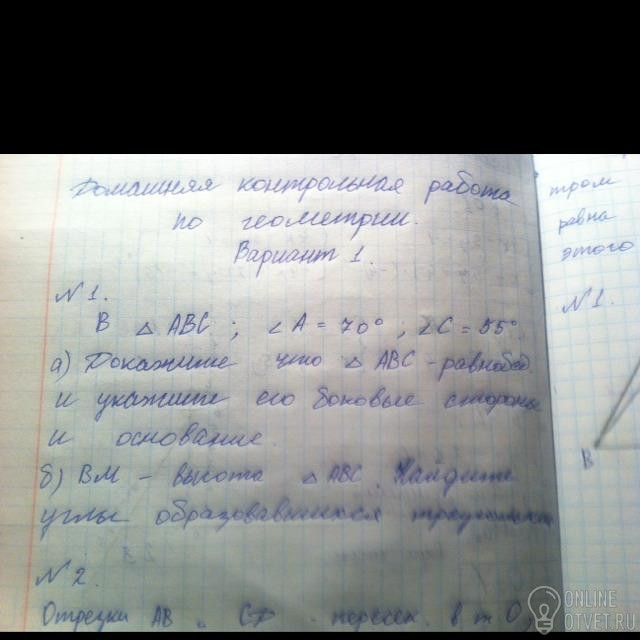 Домашняя контрольная работа
по геометрии.
Вариант 1.
№1.
В △ ABC; ∠A = 70°; ∠C = 55°.
а) Докажите что △ ABC - равнобед
и укажите его боковые стороны
и основание.
б) BM - высота △ ABC. Найдите
углы образовавшихся
№2.
Отрезки AB и CD пересек. в т O,
тром
равна
этого
№1.
B
ONLINE
OTVET.RU